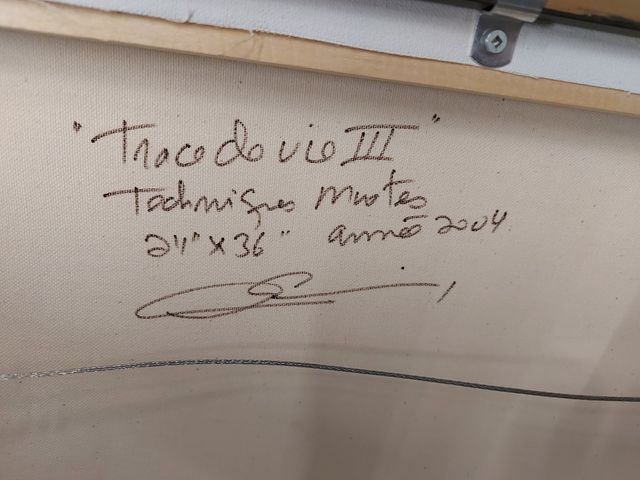 "Trace de vie III"
Techniques Mixtes
24" x 36" année 2004